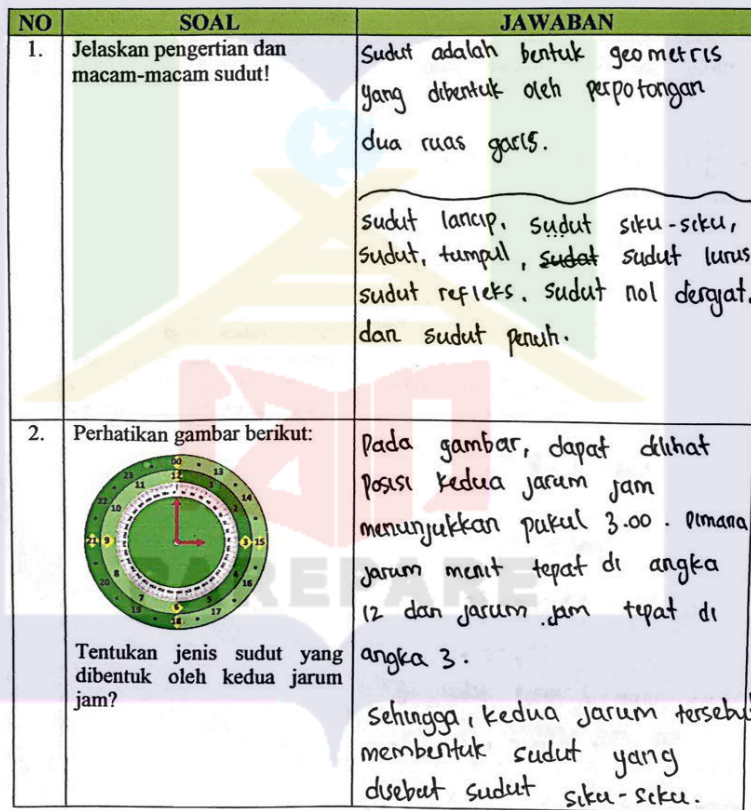 NO SOAL JAWABAN
1. Jelaskan pengertian dan
macam-macam sudut!
Sudut adalah bentuk geometris
yang dibentuk oleh perpotongan
dua ruas garis.
sudut lancip, sudut siku-siku,
sudut, tumpul, sudat sudut lurus
sudut refleks. sudut nol derajat.
dan sudut penuh.
2. Perhatikan gambar berikut:
00
23 13
12
11 1
22 14
10 2
21 9 3 15
20 8 4 16
7 5
19 6 17
18
Tentukan jenis sudut yang
dibentuk oleh kedua jarum
jam?
Pada gambar, dapat dilihat
posisi kedua jarum jam
menunjukkan pukul 3.00. Dimana
jarum menit tepat di angka
12 dan jarum jam tepat di
angka 3.
Sehingga, kedua jarum tersebu
membentuk sudut yang
disebut sudut siku-siku.
PAREPARE